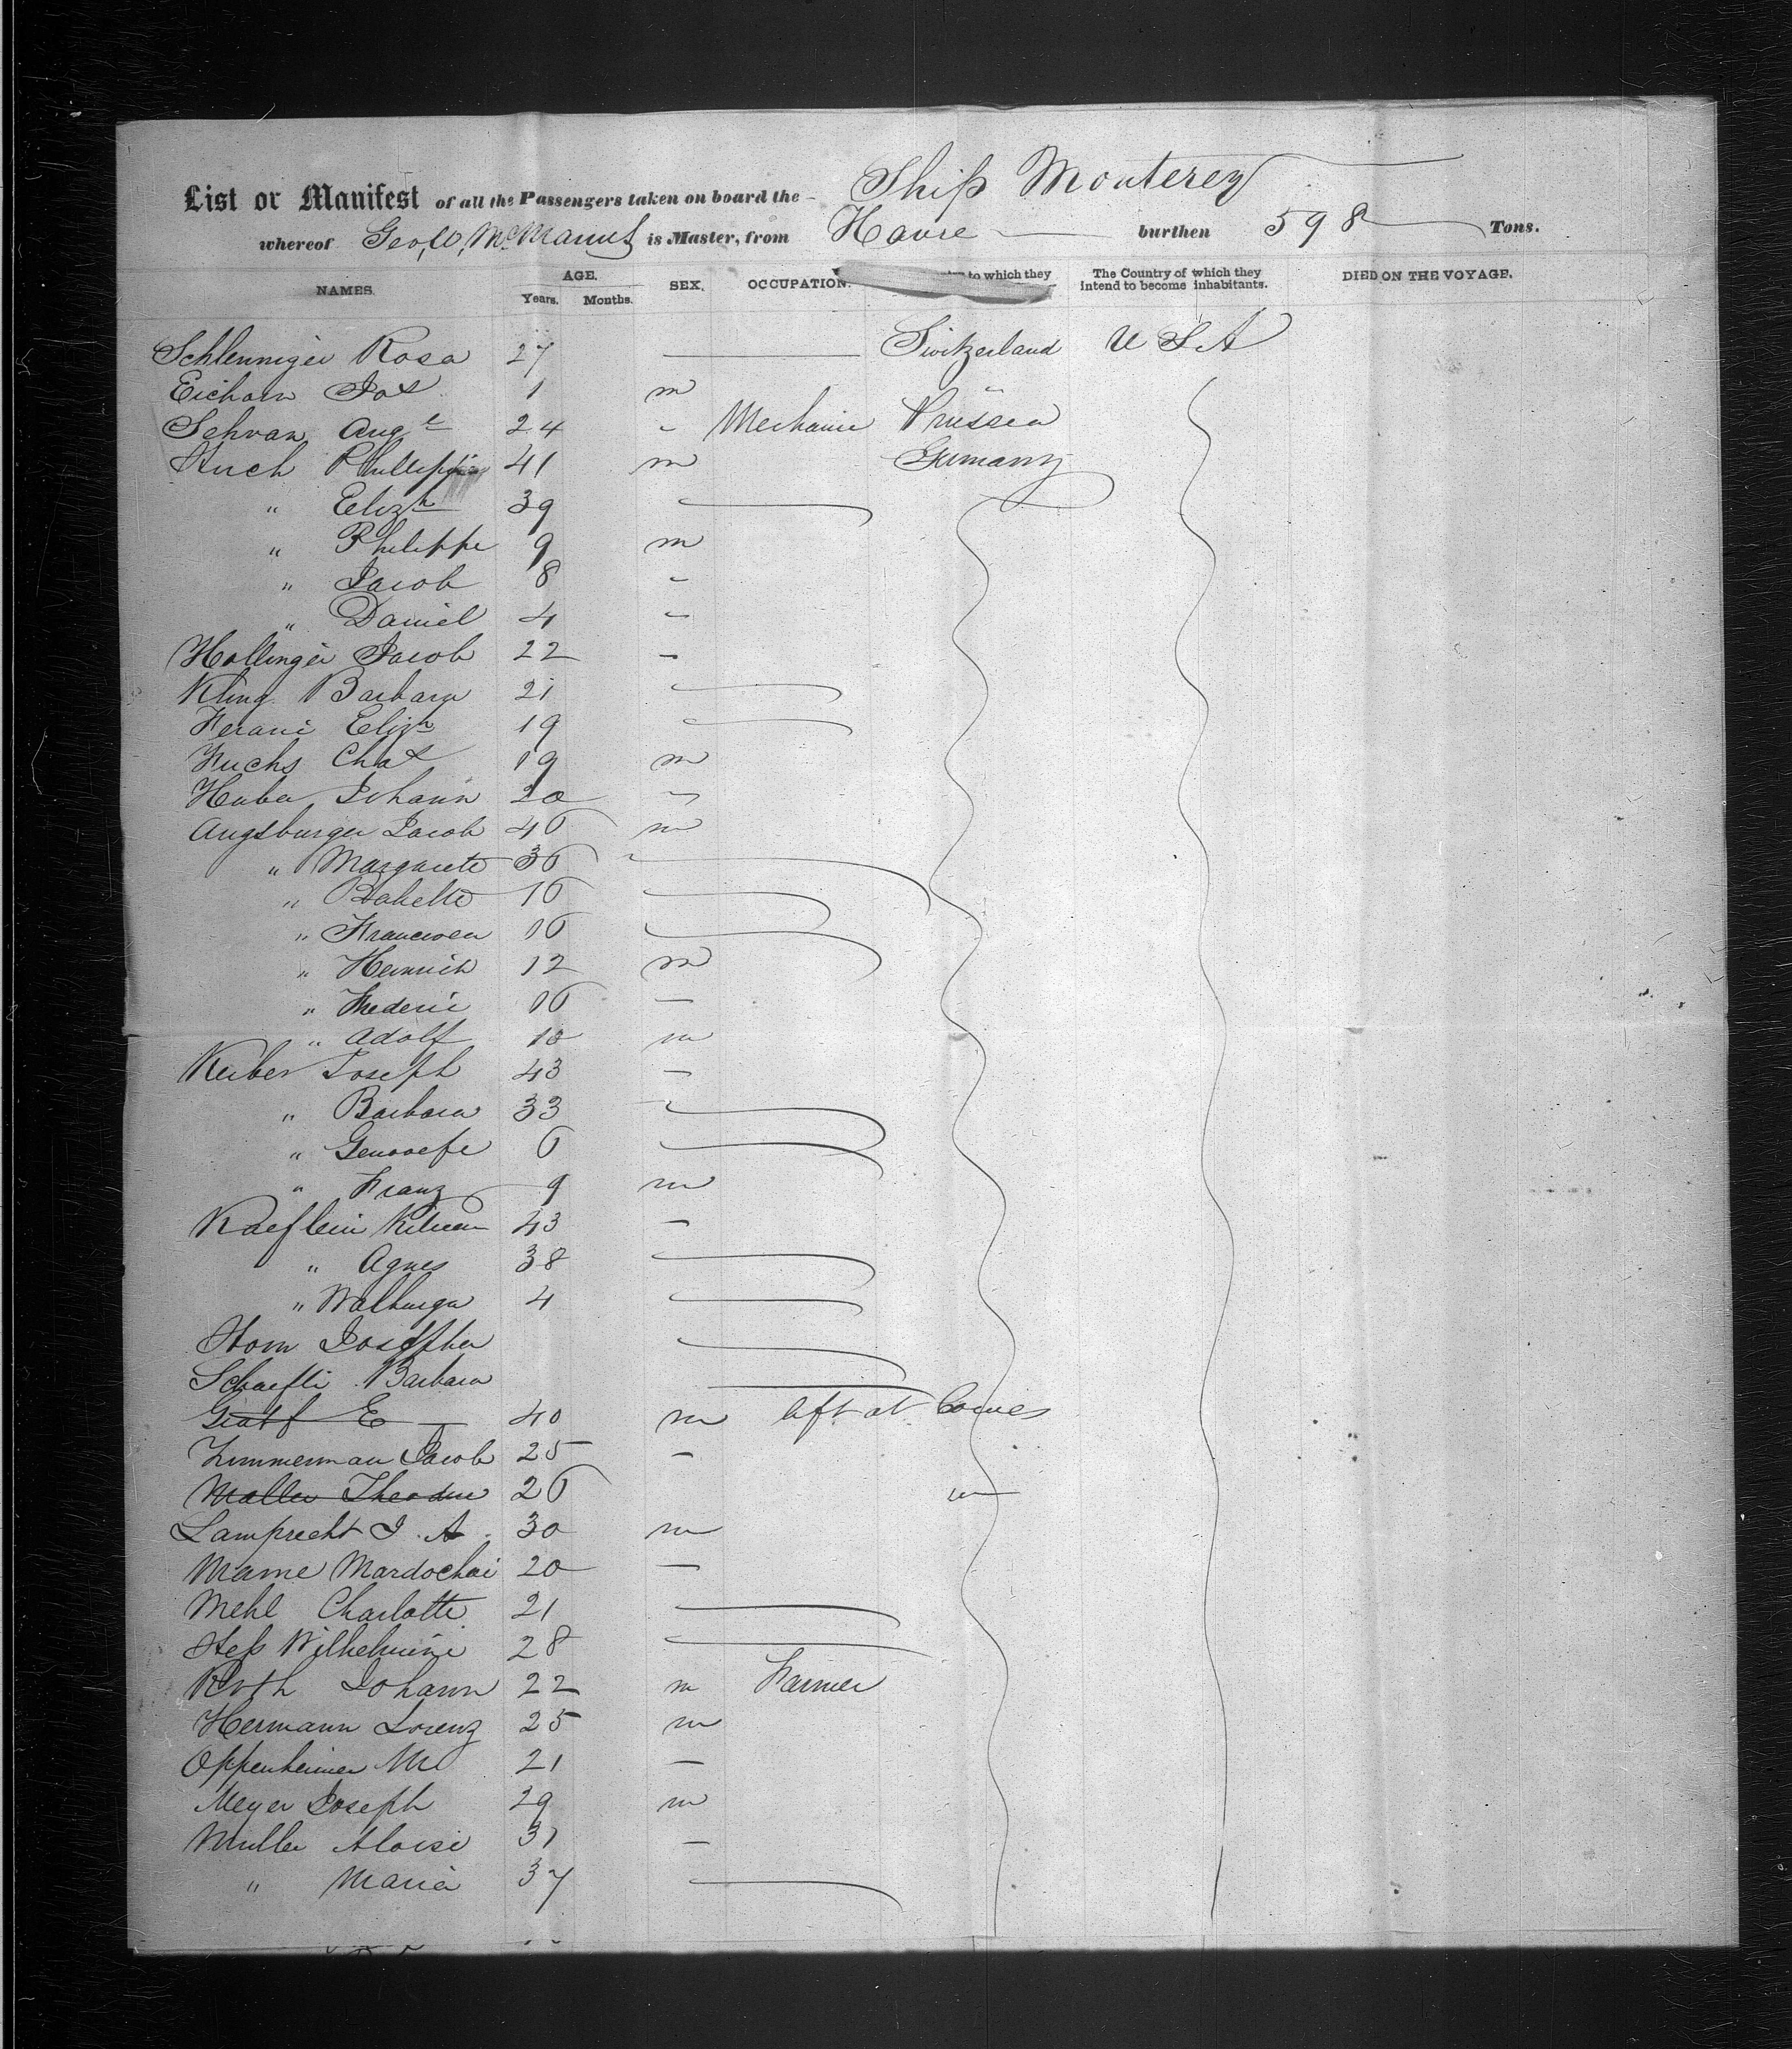 List or Manifest of all the Passengers taken on board the Ship Monterey
whereof Geo. W. McManus is Master, from Havre burthen 598 Tons.
NAMES. AGE. Years. Months. SEX. OCCUPATION. to which they The Country of which they intend to become inhabitants. DIED ON THE VOYAGE.
Schlenniger Rosa 27 Switzerland USA
Eichorn Jos 1 m "
Schvan Aug 24 " Mechanic Prussia
Huch Philippe 41 m Germany
" Elizh 39
" Philippe 9 m
" Jacob 8 "
" Daniel 4 "
Hollinger Jacob 22 "
Kling Barbara 21
Elizh 19
Fuchs Chas 19 m
Huber Johann 20 "
Augsburger Jacob 46 m
" Margarete 36
" Babette 16
" 16
" Heinrich 12 m
" Frederic 16 "
" Adolf 10 m
Keiber Joseph 43 "
" Barbara 33
" Genovefe 6
" Franz 9 m
Kaeflein Kilian 43 "
" Agnes 38
" Walburga 4
Horn Josepha
Schaefli Barbara
Graff E 40 m left at Cowes
Zimmerman Jacob 25 "
Muller Theodore 26 "
Lamprecht J. A. 30 m
Mame Mardochai 20 "
Mehl Charlotte 21
Hess Wilhelmine 28
Roth Johann 22 m Farmer
Hermann Lorenz 25 m
Oppenheimer M 21 "
Meyer Joseph 29 m
Muller Aloise 31 "
" Maria 37